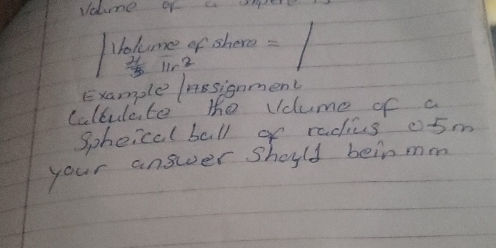 Volume of a
Volume of shere =
πr²
Example / Assignment
Calculate the Volume of a
Spheical ball of radius 0.5m
your answer should be in mm